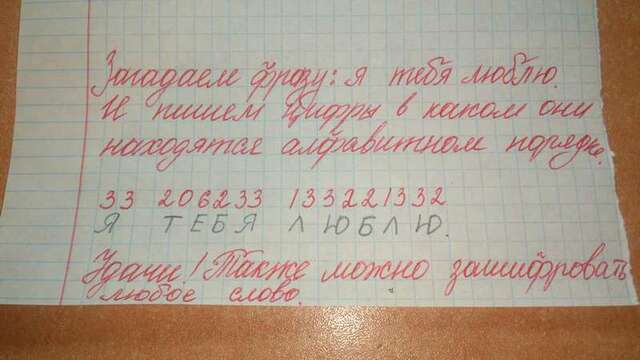 Загадаем фразу: я тебя люблю.
И пишем цифры в каком они
находятся алфавитном порядке.
33 206233 1332213 32
Я ТЕБЯ ЛЮБЛЮ.
Удачи! Также можно зашифровать
любое слово.